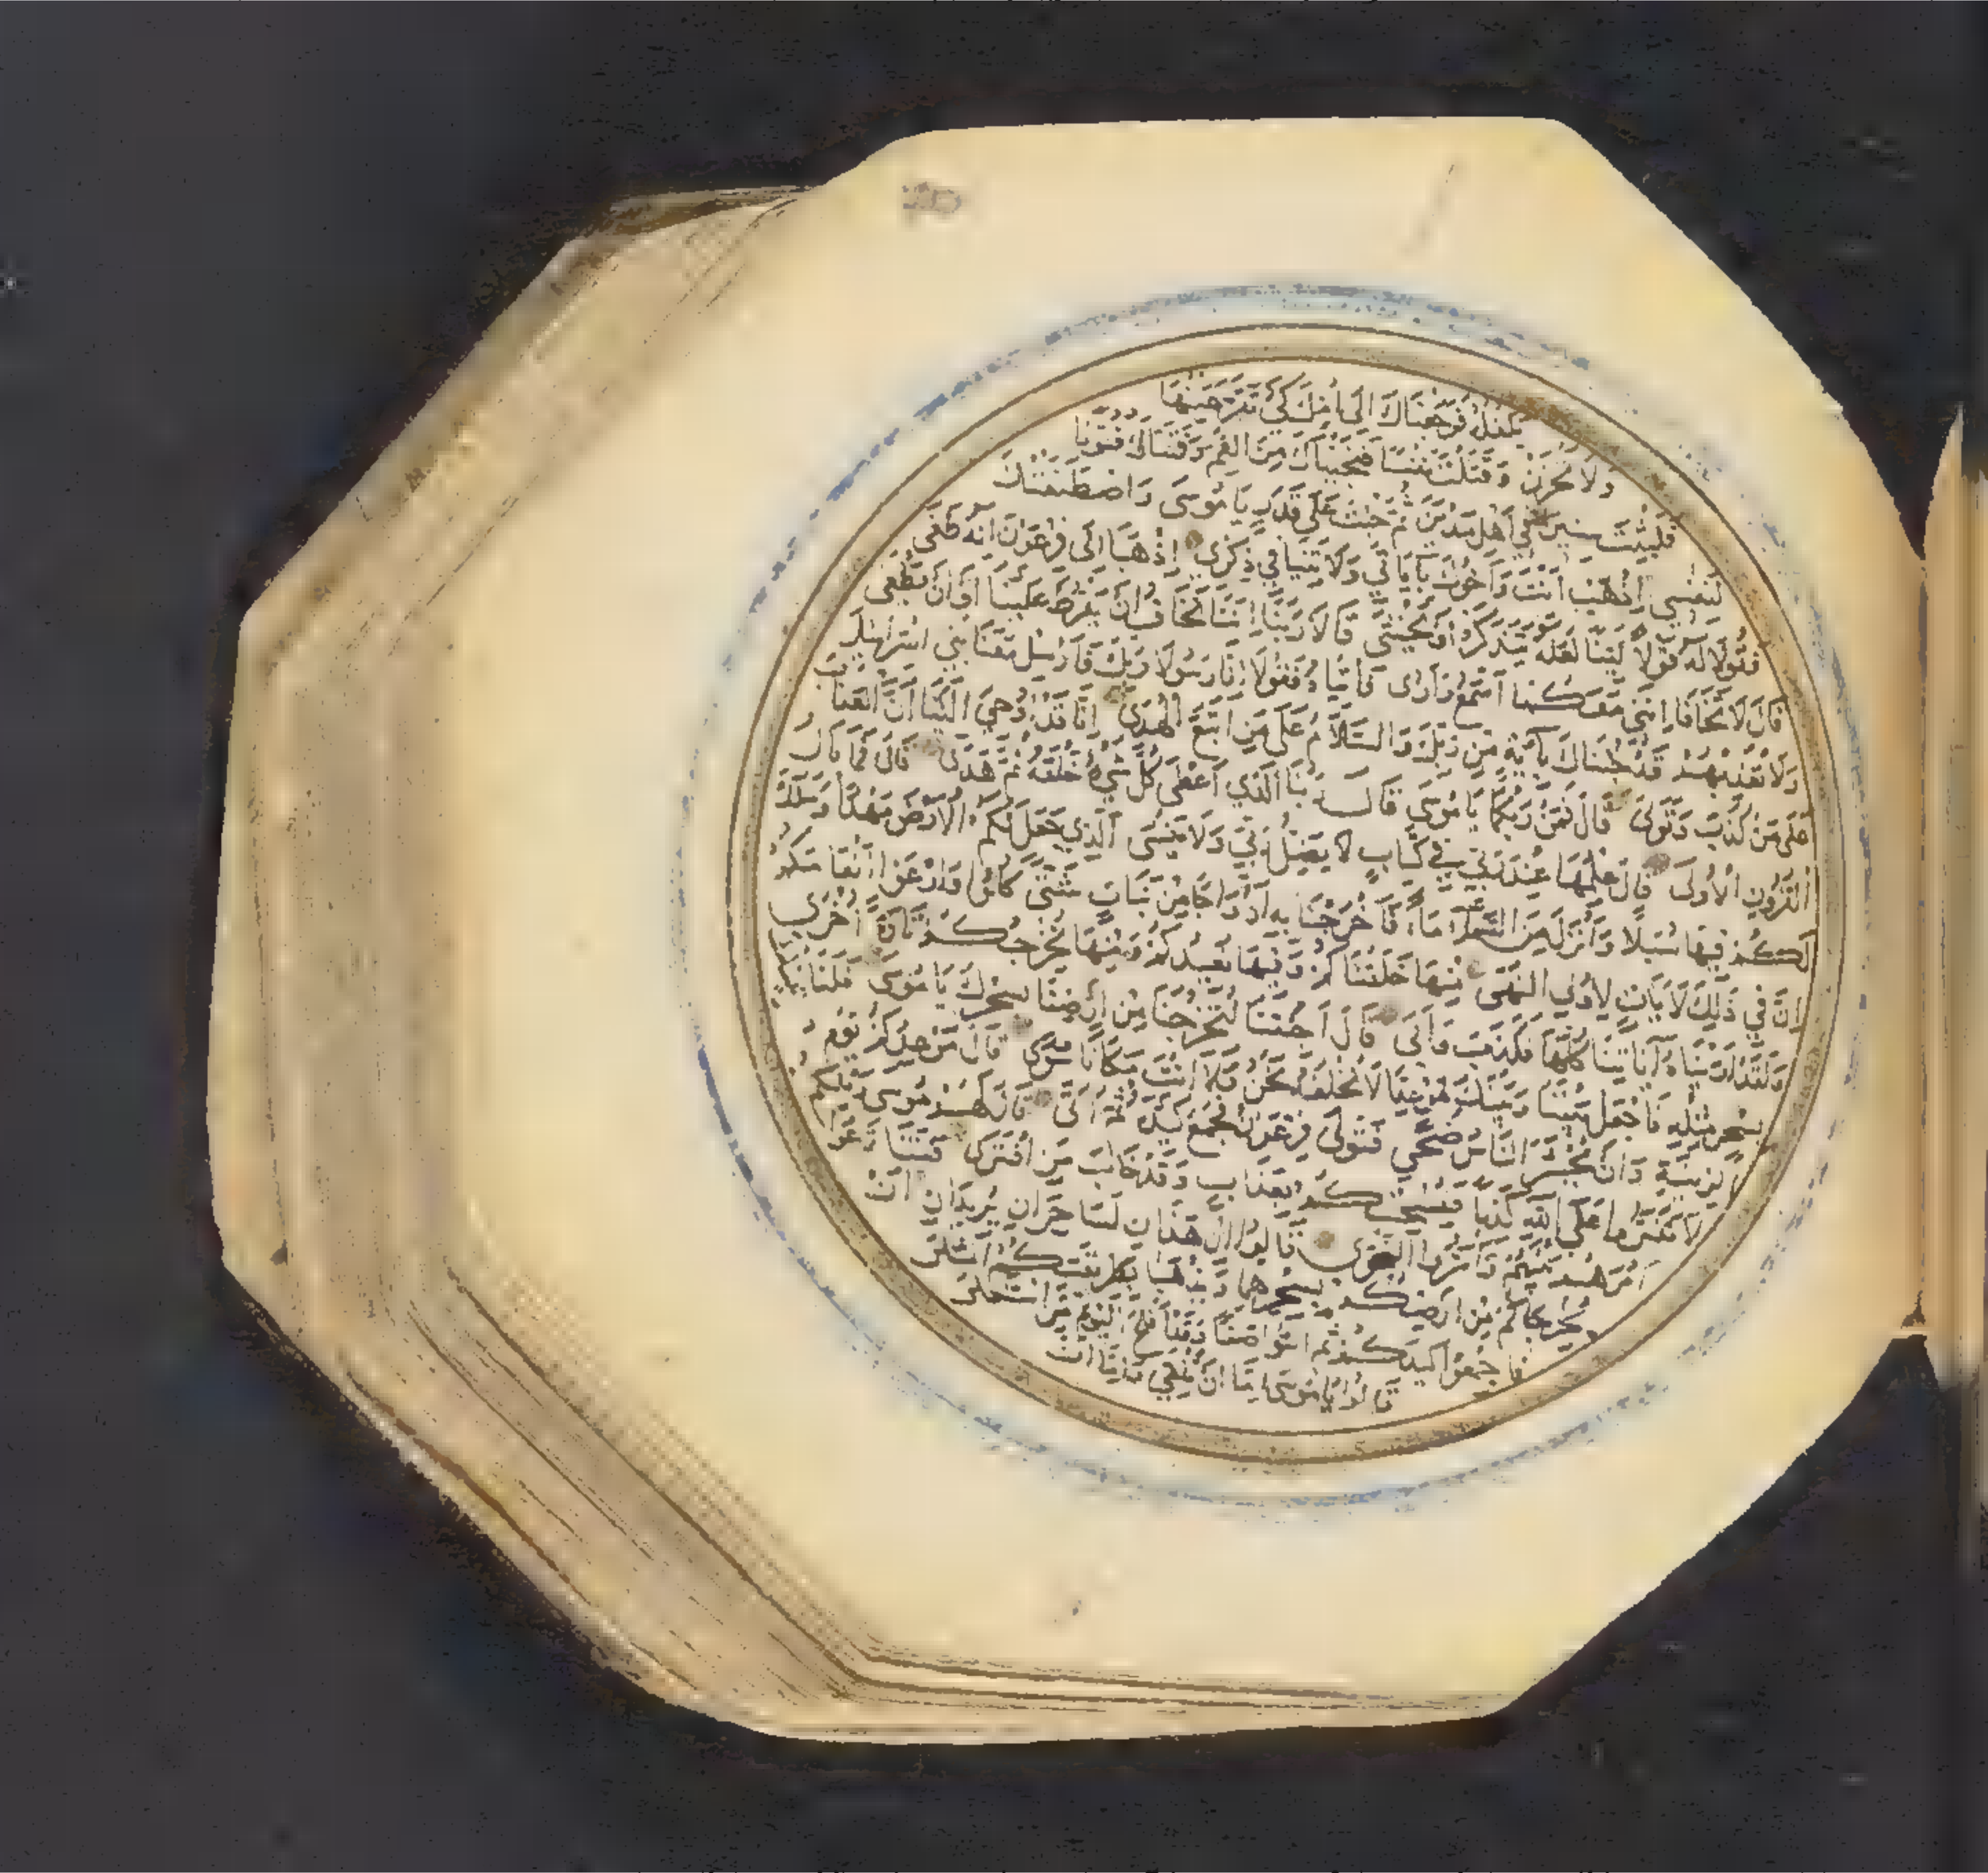 يكفله فرجعناك الى امك كي تقر عينها
ولا تحزن وقتلت نفسا فنجيناك من الغم وفتناك فتونا
فلبثت سنين في اهل مدين ثم جئت على قدر يا موسى واصطنعتك
لنفسي اذهب انت واخوك باياتي ولا تنيا في ذكري اذهبا الى فرعون انه طغى
فقولا له قولا لينا لعله يتذكر او يخشى قالا ربنا اننا نخاف ان يفرط علينا او ان يطغى
قال لا تخافا انني معكما اسمع وارى فاتياه فقولا انا رسولا ربك فارسل معنا بني اسرائيل
ولا تعذبهم قد جئناك باية من ربك والسلام على من اتبع الهدى انا قد اوحي الينا ان العذاب
على من كذب وتولى قال فمن ربكما يا موسى قال ربنا الذي اعطى كل شيء خلقه ثم هدى قال فما بال
القرون الاولى قال علمها عند ربي في كتاب لا يضل ربي ولا ينسى الذي جعل لكم الارض مهدا وسلك
لكم فيها سبلا وانزل من السماء ماء فاخرجنا به ازواجا من نبات شتى كلوا وارعوا انعامكم
ان في ذلك لايات لاولي النهى منها خلقناكم وفيها نعيدكم ومنها نخرجكم تارة اخرى
ولقد اريناه اياتنا كلها فكذب وابى قال اجئتنا لتخرجنا من ارضنا بسحرك يا موسى فلناتينك
بسحر مثله فاجعل بيننا وبينك موعدا لا نخلفه نحن ولا انت مكانا سوى قال موعدكم يوم
الزينة وان يحشر الناس ضحى فتولى فرعون فجمع كيده ثم اتى قال لهم موسى ويلكم
لا تفتروا على الله كذبا فيسحتكم بعذاب وقد خاب من افترى فتنازعوا
امرهم بينهم واسروا النجوى قالوا ان هذان لساحران يريدان ان
يخرجاكم من ارضكم بسحرهما ويذهبا بطريقتكم المثلى
فاجمعوا كيدكم ثم ائتوا صفا وقد افلح اليوم من استعلى
قالوا يا موسى اما ان تلقي واما ان